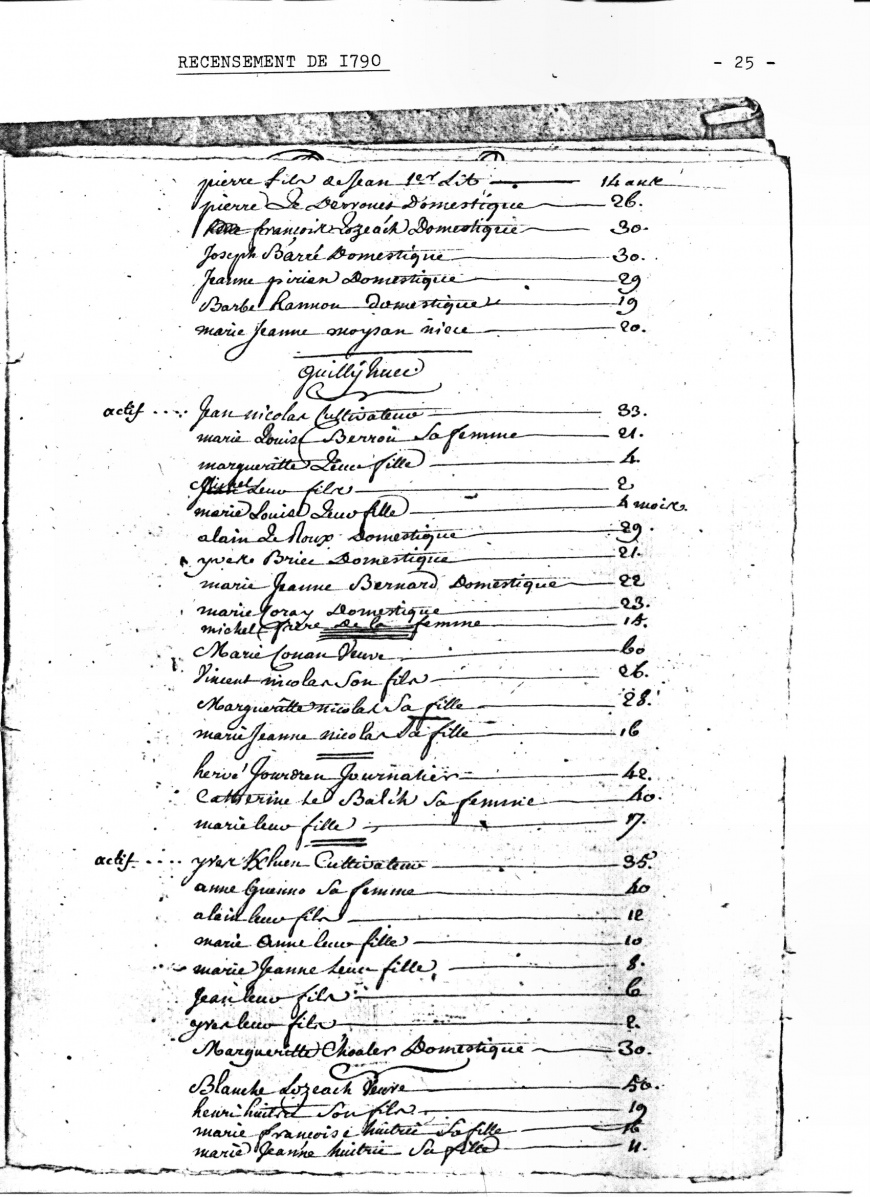 RECENSEMENT DE 1790 - 25 -
pierre fils de Jean 1er Lit 14 ans
pierre Le Derrouet Domestique 26.
françois Lozeach Domestique 30.
Joseph Barré Domestique 30.
Jeanne pirian Domestique 29
Barbe hannou domestique 19
marie Jeanne moysan niece 20.
Quillyhuec
actif .... Jean nicolas Cultivateur 33.
marie Louise Berrou Sa femme 21.
margueritte Leur fille 4.
Michel Leur fils 2
marie Louise Leur fille 4 mois.
alain Le Roux Domestique 29.
yves Briec Domestique 21.
marie Jeanne Bernard Domestique 22
marie Domestique 23.
michel frere De la femme 14.
Marie Conan Veuve 60
Vincent nicolas Son fils 26.
Margueritte nicolas Sa fille 28.
marie Jeanne nicolas Sa fille 16
hervé Jourdren Journalier 42.
Catherine Le Balch Sa femme 40.
marie leur fille 7.
actif .... yves Kkhuen Cultivateur 35.
anne Guenno Sa femme 40
alain leur fils 12
marie anne leur fille 10
marie Jeanne Leur fille 8.
Jean leur fils 6
yves leur fils 2.
Margueritte Choaler Domestique 30.
Blanche Lozeach Veuve 50.
henri huitric Son fils 19
marie françoise huitric Sa fille 16
marie Jeanne huitric Sa fille 11.